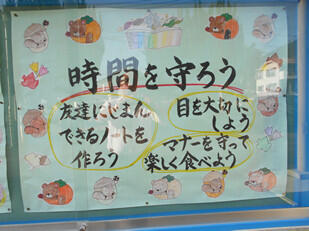 時間を守ろう
友達にじまん
できるノートを
作ろう
目を大切に
しよう
マナーを守って
楽しく食べよう